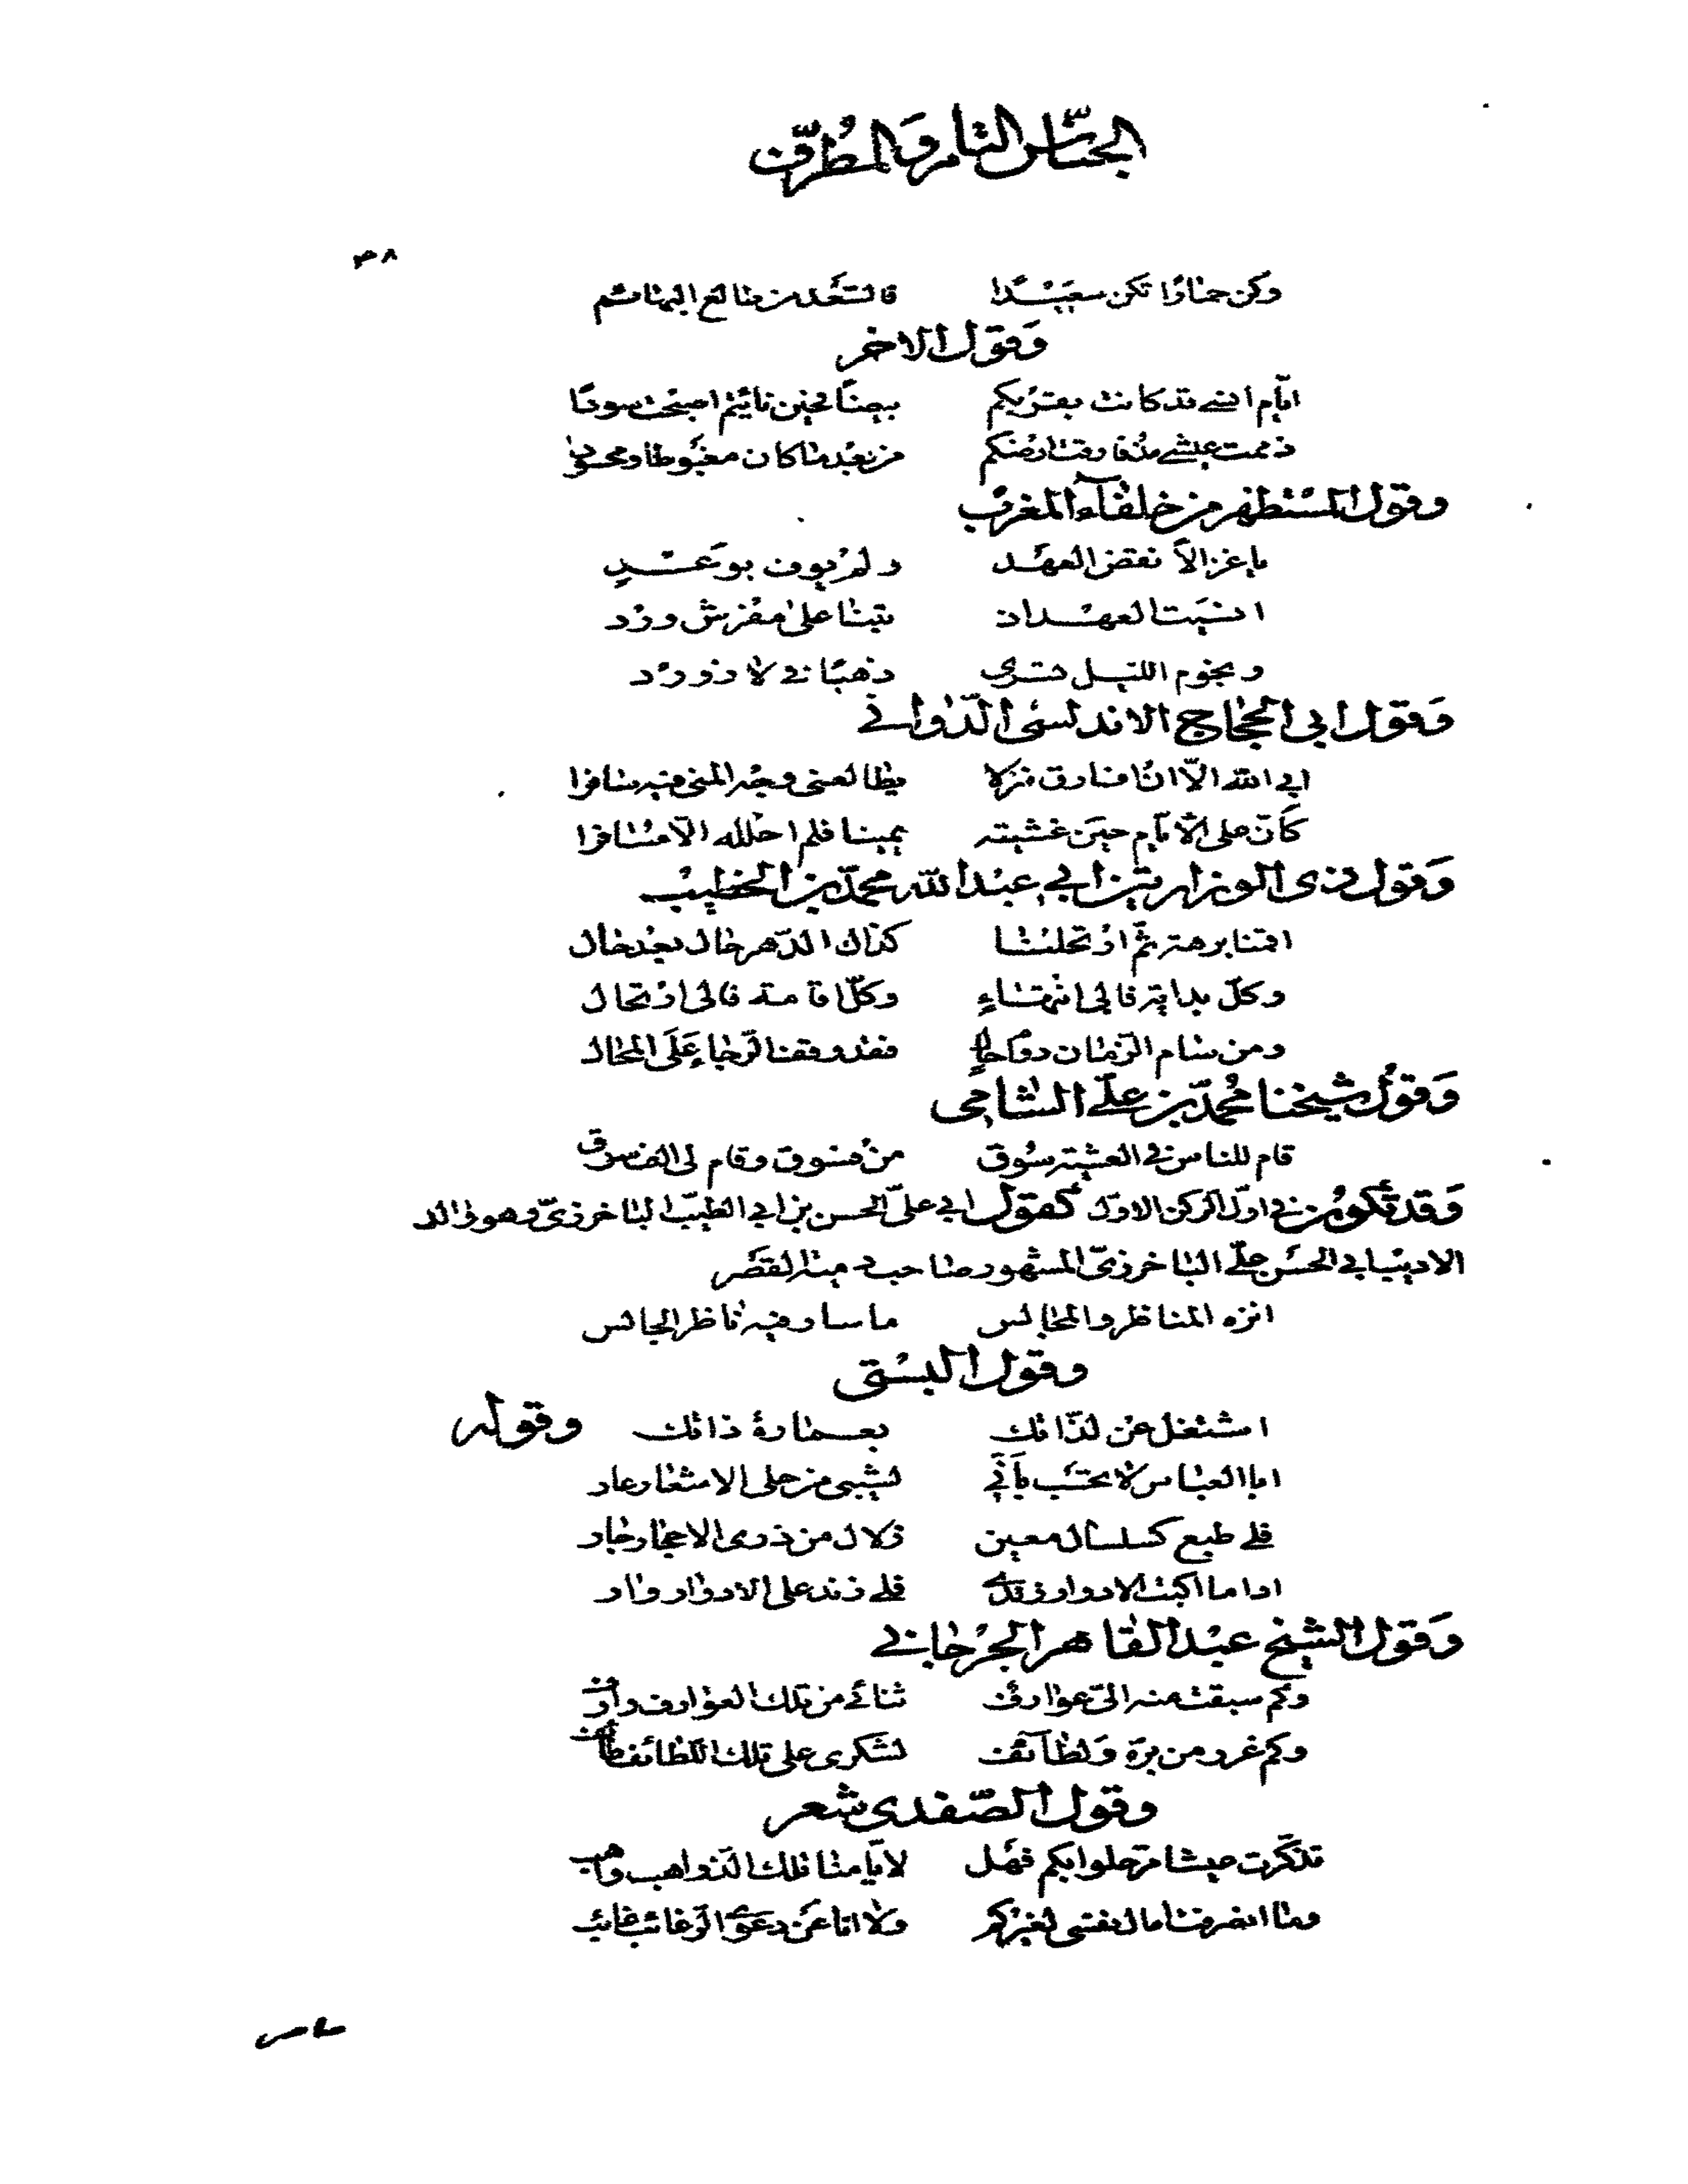 الجناس التام والمطرف
٣٨
وكن حمارًا تكن سعيدًا فالسعد من طالع البهائم
وقول الاخر
ايّام انسي قد كانت بقربكم بيضًا فحين نايتم اصبحت سودًا
ذممت عيشي مذ فارقت ارضكم من بعد ما كان مغبوطا ومحسودا
وقول المستظهر من خلفآء المغرب
يا غزالاً نقض العهد ولم يوف بوعد
انسيت العهد اذ بتنا على مفرش ورد
ونجوم الليل تسري ذهبًا في لازورد
وقول ابي الحجاج الاندلسي الدّواني
ابى الله الّا ان افارق منزلا يطالعني وجه المنى فيه سافرا
كأنّ على الأيّام حين غشيته يمينا فلم احلله الّا مسافرا
وقول ذي الوزارتين ابي عبد الله محمّد بن الخطيب
اقمنا برهة ثمّ ارتحلنا كذاك الدّهر حال بعد حال
وكلّ بداية فالى انتهاءٍ وكلّ اقامة فالى ارتحال
ومن سام الزّمان دوام حالٍ فقد وقف الرّجاء على المحال
وقول شيخنا محمّد بن عليّ الشامي
قام للناس في العشية سوق من فسوق وقام لى الفا سوق
وقد تكون في اوّل الركن الاوّل كقول ابي عليّ الحسن بن ابي الطيّب الباخرزيّ وهو والد
الاديب ابي الحسن عليّ الباخرزيّ المشهور صاحب دمية القصر
انزه المناظر والمجالس ما سار فيه ناظر الجالس
وقول البستى
اشتغل عن لذّاتك بعمارة ذاتك وقوله
ابا العباس لا تحسب بأنّي لشيبى من حلى الاشعار عار
فلي طبع كسلسال معين زلال من ذرى الاحجار جار
اذا ما اكبت الادوار زندًا فلي زند على الادوار وار
وقول الشيخ عبد القاهر الجرجاني
وكم سبقت منه الىّ عوارف ثنائي من تلك العوارف وارف
وكم غرر من برّه ولطآئف لشكرى على تلك اللّطائف طائف
وقول الصّفدى شعر
تذكّرت عيشا مرّ حلوا بكم فهل لايّامنا تلك الذواهب واهب
وما انصرفت امال نفسى لغيركم ولا انا عن دعوى الرّغائب غائب